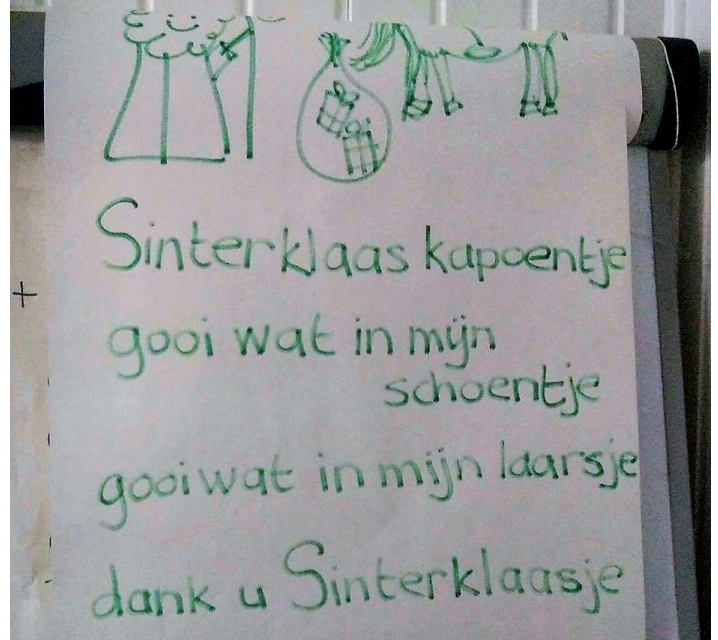 Sinterklaas kapoentje
gooi wat in mijn
schoentje
gooi wat in mijn laarsje
dank u Sinterklaasje